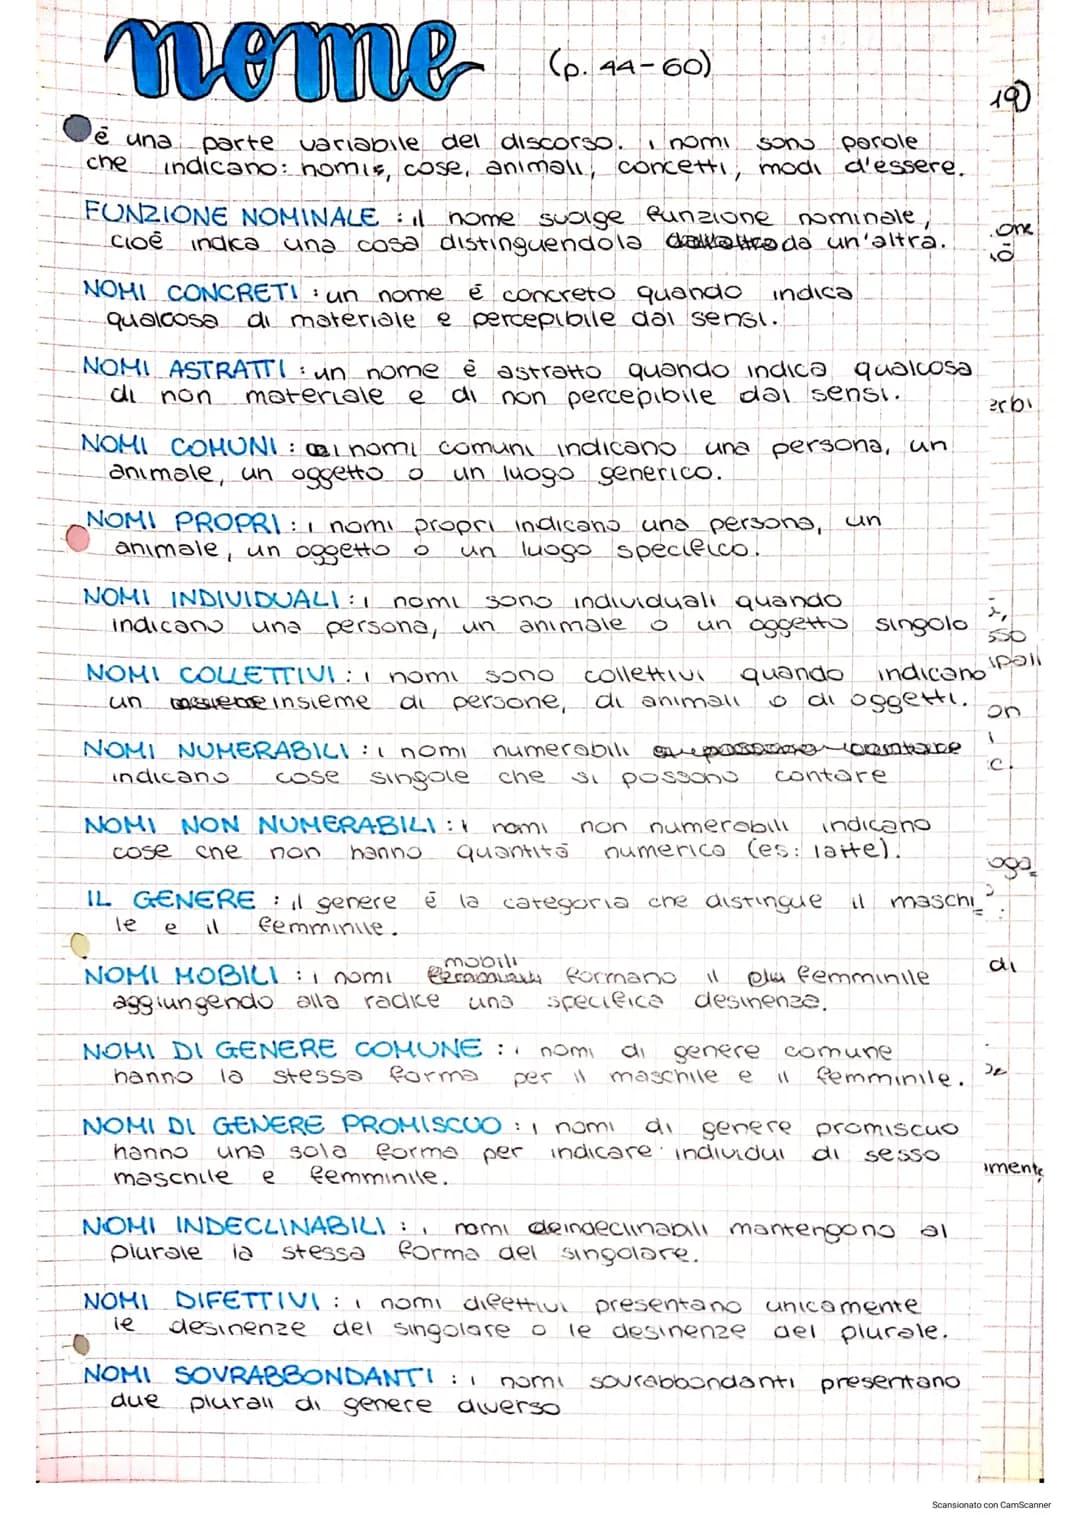 nome (p. 44-60)
19)
è una parte variabile del discorso. i nomi sono parole
che indicano: nomi, cose, animali, concetti, modi d'essere.
FUNZIONE NOMINALE : il nome svolge funzione nominale,
cioè indica una cosa distinguendola da un'altra.
NOMI CONCRETI : un nome è concreto quando indica
qualcosa di materiale e percepibile dai sensi.
NOMI ASTRATTI : un nome è astratto quando indica qualcosa
di non materiale e di non percepibile dai sensi.
erbi
NOMI COMUNI : i nomi comuni indicano una persona, un
animale, un oggetto o un luogo generico.
NOMI PROPRI : i nomi propri indicano una persona, un
animale, un oggetto o un luogo specifico.
NOMI INDIVIDUALI : i nomi sono individuali quando
indicano una persona, un animale o un oggetto singolo
NOMI COLLETTIVI : i nomi sono collettivi quando indicano
un insieme di persone, di animali o di oggetti.
on
NOMI NUMERABILI : i nomi numerabili
indicano cose singole che si possono contare
NOMI NON NUMERABILI : i nomi non numerabili indicano
cose che non hanno quantità numerica (es: latte).
IL GENERE : il genere è la categoria che distingue il maschi_
le e il femminile.
NOMI MOBILI : i nomi mobili formano il femminile
aggiungendo alla radice una specifica desinenza.
di
NOMI DI GENERE COMUNE : i nomi di genere comune
hanno la stessa forma per il maschile e il femminile.
NOMI DI GENERE PROMISCUO : i nomi di genere promiscuo
hanno una sola forma per indicare individui di sesso
maschile e femminile.
amente
NOMI INDECLINABILI : i nomi indeclinabili mantengono al
plurale la stessa forma del singolare.
NOMI DIFETTIVI : i nomi difettivi presentano unicamente
le desinenze del singolare o le desinenze del plurale.
NOMI SOVRABBONDANTI : i nomi sovrabbondanti presentano
due plurali di genere diverso
Scansionato con CamScanner